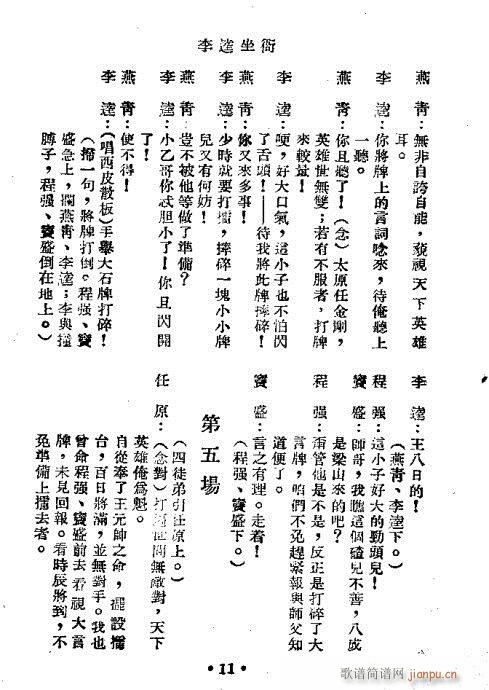 李逵坐衙
燕青：無非自誇自能，藐視天下英雄
耳。
李逵：你將牌上的言詞唸來，待俺聽上
一聽。
燕青：你且聽了！（念）太原任金剛，
英雄世無雙；若有不服者，打牌
來較量！
李逵：哽，好大口氣，這小子也不怕閃
了舌頭！——待我將此牌摔碎！
燕青：你又來多事！
李逵：少時就要打擂，摔碎一塊小小牌
兒又有何妨！
燕青：豈不被他等做了準備？
李逵：小乙哥你忒胆小了！你且閃開
了！
燕青：使不得！
李逵：（唱西皮散板）手舉大石牌打碎！
（掃一句，將牌打倒。程强、竇
盛急上，攔燕青、李逵；李與撞
膀子，程强、竇盛倒在地上。）
李逵：王八日的！
（燕青、李逵下。）
程强：這小子好大的勁頭兒！
竇盛：師哥，我瞧這個碴兒不善，八成
是梁山來的吧？
程强：甭管他是不是，反正是打碎了大
言牌，咱們不免趕緊報與師父知
道便了。
竇盛：言之有理。走着！
（程强、竇盛下。）
第五場
（四徒弟引任原上。）
任原：（念對）打遍世間無敵對，天下
英雄俺爲魁。
自從奉了王元帥之命，擺設擂
台，百日將滿，並無對手。我也
曾命程强、竇盛前去看視大言
牌，未見回報。看時辰將到，不
免準備上擂去者。
·11·
歌谱简谱网
jianpu.cn